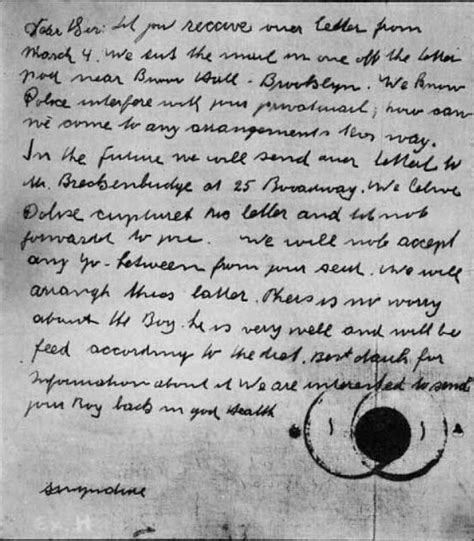 Dear Sir: Did you receive ouer letter from
March 4. We sent the mail in one off the letter
near Borro Hall - Brooklyn. We know
Police interfere with your privatmail; how can
we come to any arrangements this way.
In the future we will send ouer letters to
Mr. Breckenbridge at 25 Broadway. We
Polise captured letter and not
forwardet to you. We will not accept
any go-between from your seid. We will
arrangh thies latter. There is no worry
about the Boy. he is very well and will be
feed according to the diet. Best dank for
Information about it. We are interested to send
your Boy back in gud Health
Ex. H